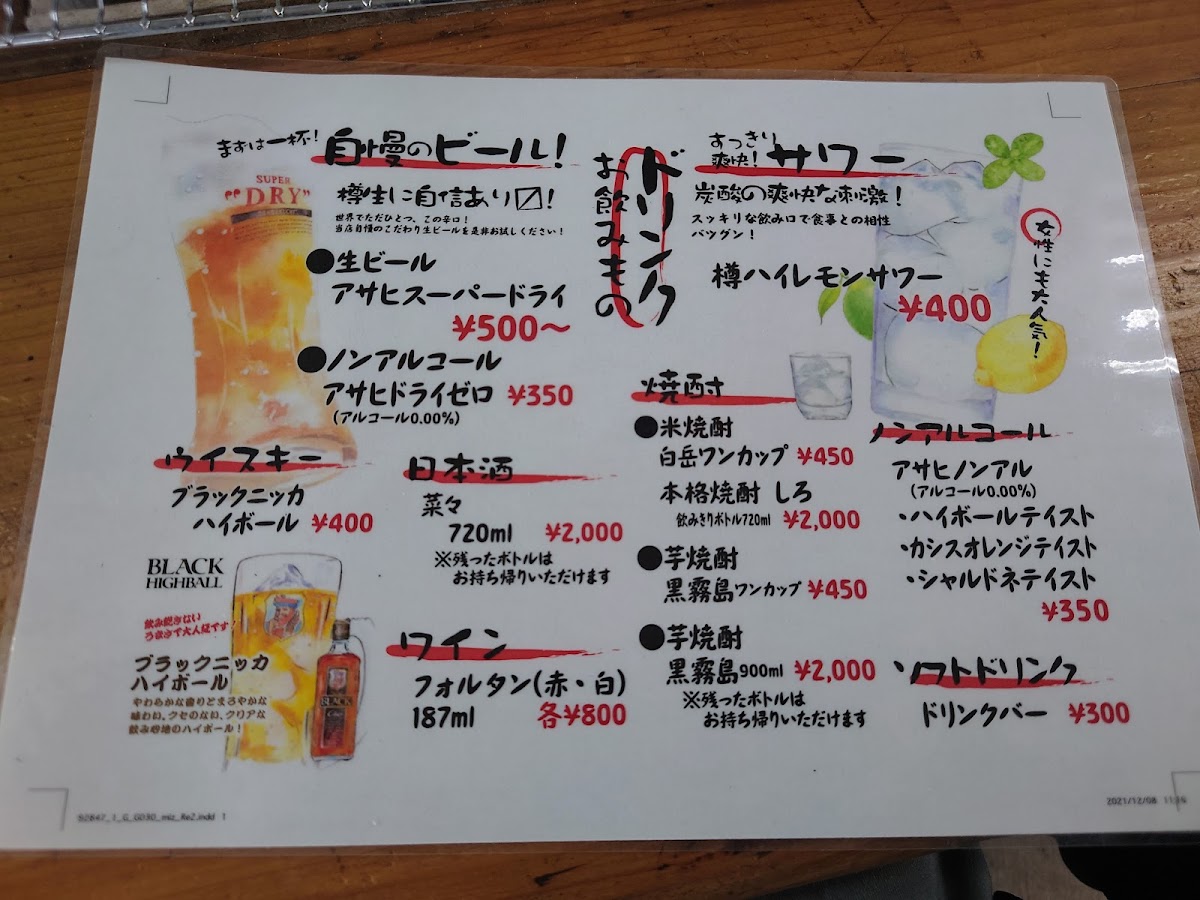 ドリンク
お飲みもの
まずは一杯!
自慢のビール!
SUPER
"DRY"
樽生に自信あり〼!
世界でただひとつ、この辛口!
当店自慢のこだわり生ビールを是非お試しください!
●生ビール
アサヒスーパードライ
¥500〜
●ノンアルコール
アサヒドライゼロ ¥350
(アルコール0.00%)
すっきり
爽快!
サワー
炭酸の爽快な刺激!
スッキリな飲み口で食事との相性
バツグン!
女性にも大人気!
樽ハイレモンサワー
¥400
ウイスキー
ブラックニッカ
ハイボール ¥400
BLACK
HIGHBALL
飲み飽きない
うまさで大人気です!
ブラックニッカ
ハイボール
やわらかな香りとまろやかな
味わい。クセのない、クリアな
飲み心地のハイボール!
BLACK
日本酒
菜々
720ml ¥2,000
※残ったボトルは
お持ち帰りいただけます
ワイン
フォルタン(赤・白)
187ml 各¥800
焼酎
●米焼酎
白岳ワンカップ ¥450
本格焼酎 しろ
飲みきりボトル720ml ¥2,000
●芋焼酎
黒霧島ワンカップ ¥450
●芋焼酎
黒霧島900ml ¥2,000
※残ったボトルは
お持ち帰りいただけます
ノンアルコール
アサヒノンアル
(アルコール0.00%)
・ハイボールテイスト
・カシスオレンジテイスト
・シャルドネテイスト
¥350
ソフトドリンク
ドリンクバー ¥300
2021/12/08